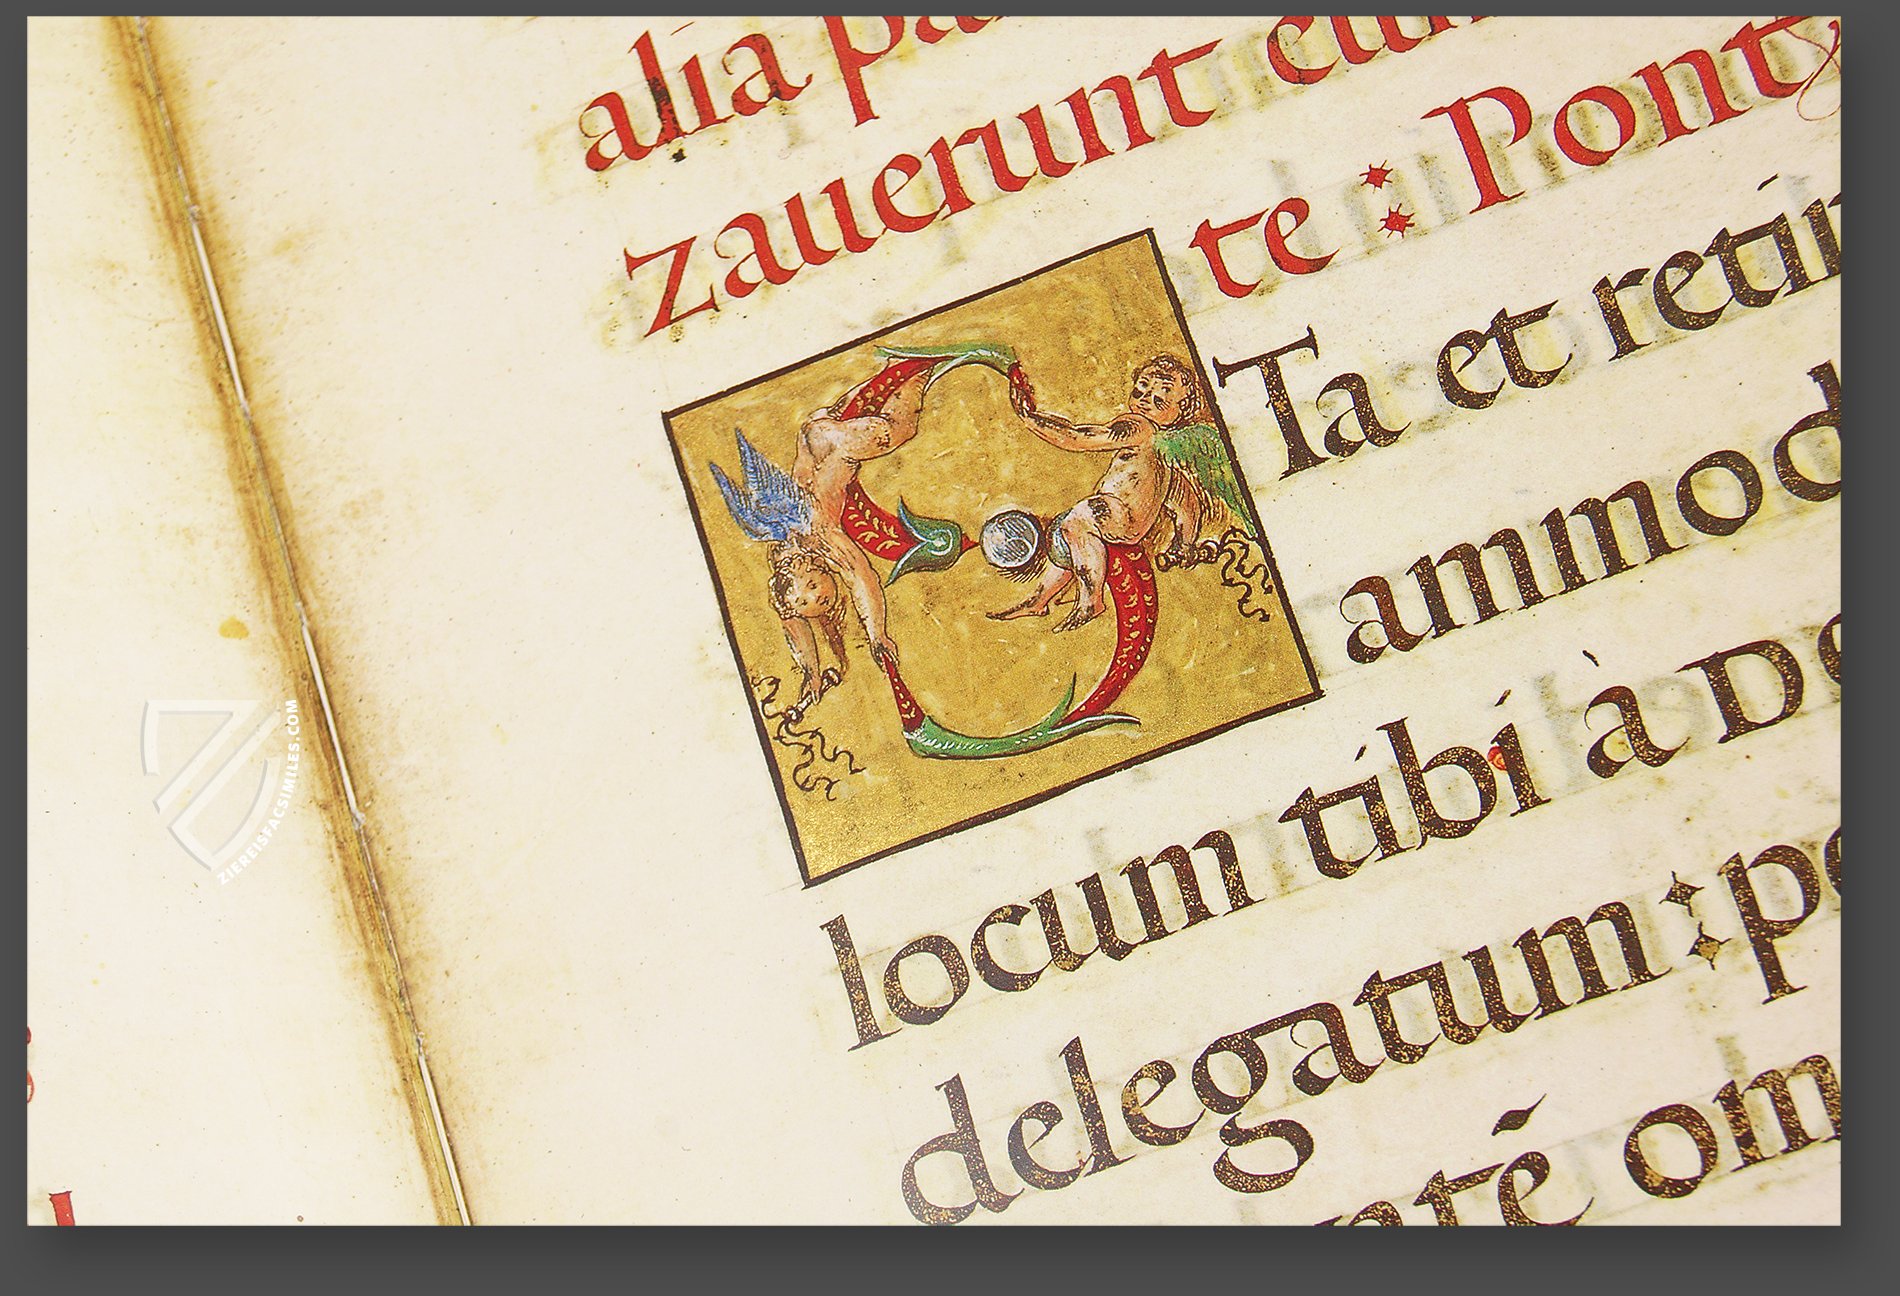 alia pa
zauerunt eum
te : Pont
STa et retin
ammod
locum tibi à De
delegatum : pe
nté om
ZIEREISFACSIMILES.COM